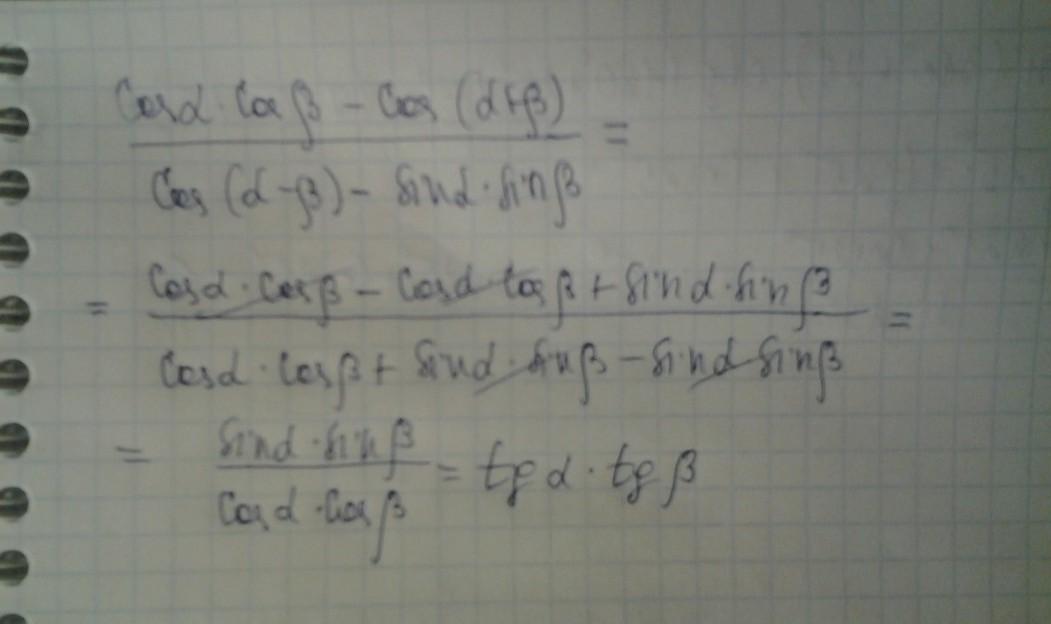 cosα · cosβ − cos (α+β)
=
cos (α−β) − sinα · sinβ
= cosα · cosβ − cosα cosβ + sinα · sinβ
=
cosα · cosβ + sinα · sinβ − sinα sinβ
= sinα · sinβ
= tg α · tg β
cosα · cosβ